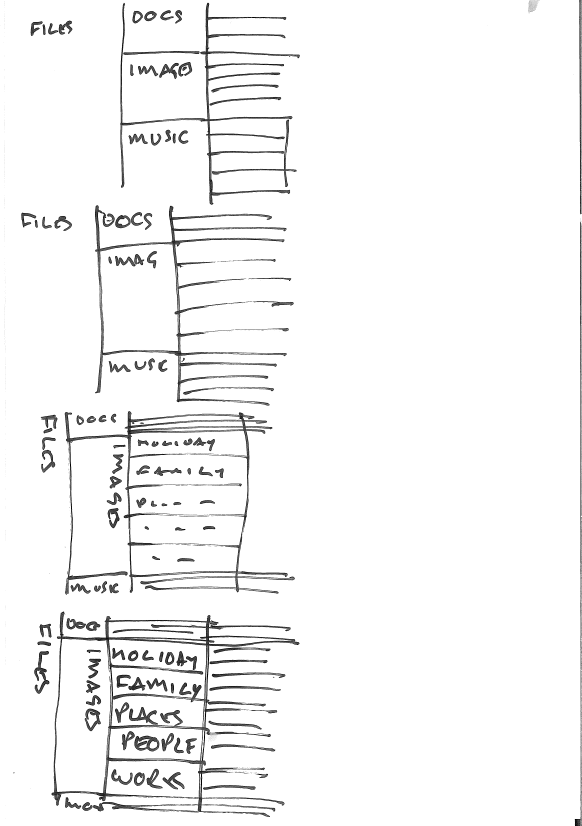 FILES
DOCS
IMAGES
MUSIC
FILES
DOCS
IMAG
MUSIC
FILES
DOCS
IMAGES
HOLIDAY
FAMILY
MUSIC
FILES
DOCS
IMAGES
HOLIDAY
FAMILY
PLACES
PEOPLE
WORK